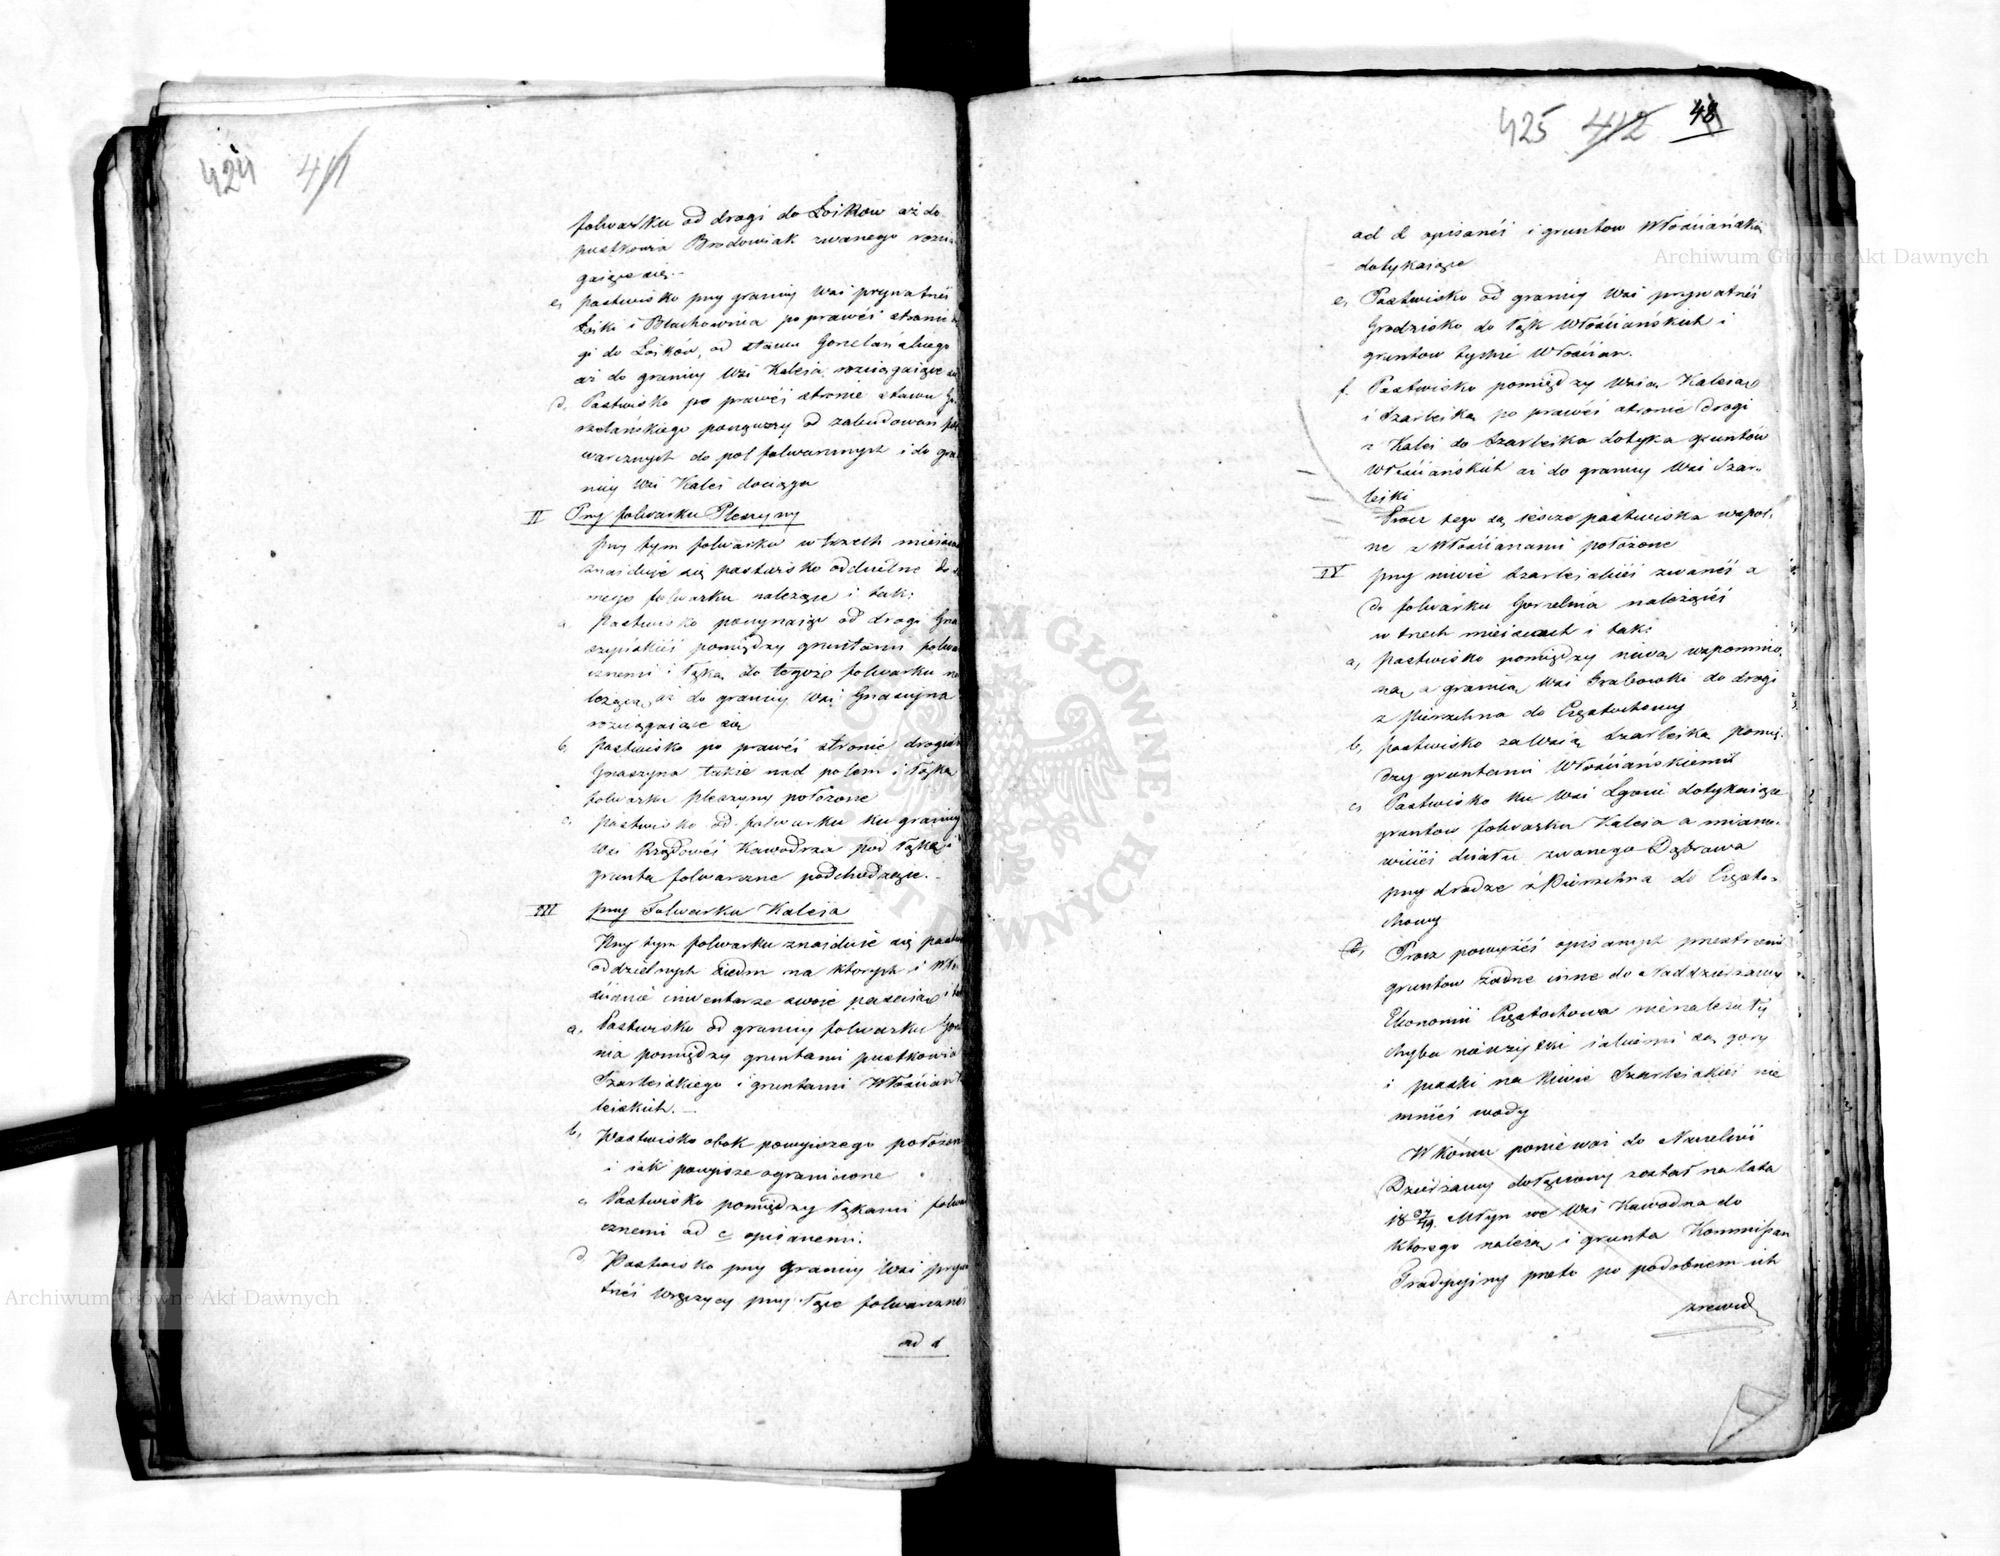 424 411
folwarku od drogi do Łoików aż do
pustkowia Brodowiak zwanego rozcią
gaiące się.-
c, pastwisko przy granicy Wsi prywatnéi
Łoiki i Blachownia po prawéi stronie
gi do Łoików, od stawu Gorzelańskiego
aż do granicy Wsi Kaleia, rozciągaiące się
d, Pastwisko po prawéi stronie stawu Go
rzelańskiego począwszy od zabudowań fol
warcznych do pól folwarcznych i do gra
nicy Wsi Kalei dociąga
II Przy folwarku Pleszyny
przy tym folwarku w trzech mieiscach
znaiduje się pastwisko oddzielne do
mego folwarku należące i tak:
a, Pastwisko poczynaiąc od drogi Gna
szyńskiéi pomiędzy gruntami folwar
cznemi i Łąką do tegoż folwarku na
leżącą aż do granicy Wsi Gnaszyna
rozciągaiące się
b, pastwisko po prawéi stronie drogi do
Gnaszyna także nad polem i Łąką
folwarku Pleszyny położone
c, pastwisko od folwarku ku granicy
Wsi Rządowéi Kawodrza pod Łąkę i
grunta folwarczne podchodzące.-
III przy Folwarku Kaleja
Przy tym folwarku znaiduie się pastw
oddzielnych siedm na których i Wło
ścianie inwentarze swoje pasaią i tak
a, Pastwisko od granicy folwarku Gorzel
nia pomiędzy gruntami pustkowia
Szarleiskiego i gruntami Włościan
leiskich.-
b, Pastwisko obok powyższego położone
i iak powyższe ograniczone
c, Pastwisko pomiędzy Łąkami folwar
cznemi ad c, opisanemi.
d, Pastwisko przy granicy Wsi prywa
tnéi Wręczycy przy Łące folwarcznéi
ad d
425 412 48
ad d opisanéi i gruntow Włościańskich
dotykaiące
e, Pastwisko od granicy Wsi prywatnéi
Grodzisko do Łąk Włościańskich i
gruntow tychże Włościan.
f. Pastwisko pomiędzy Wsią Kaleiąe
i Szarleiką po prawéi stronie drogi
z Kalei do Szarleika dotyka gruntów
Włościańskich aż do granicy Wsi Szar-
leiki
Procz tego są iescze pastwiska wspol-
ne z Włościanami położone
IV przy niwie Szarleiskiéi zwanéi a
do folwarku Gorzelnia należącéi
w trzech mieiscach i tak:
a, pastwisko pomiędzy niwą wspomnio
ną a granicą Wsi Grabowki do drogi
z Pierzchna do Częstochowy
b, pastwisko za Wsią Szarleiką pomię
dzy gruntami Włościańskiemi
c, Pastwisko ku Wsi Lgocie dotykaiące
gruntow folwarku Kaleia a miano-
wicie działu zwanego Dąbrowa
przy drodze z Pierzchna do Często-
chowy
Procz powyżéi opisanych przestrzeni
gruntow żadne inne do Naddzierżawy
Ekonomii Częstochowa nienależały
chyba nieużytki iakiemi są gory
i piaski na Niwie Szarleiskiéi nie
mniéi wody
W końcu ponieważ do Naczelnéi
Dzierżawy dołączony został na lata
18 37/49 Młyn we Wsi Kawodrza do
ktorego należą i grunta Kommissarz
Tradycyiny przeto po podobnem ich
zrewid